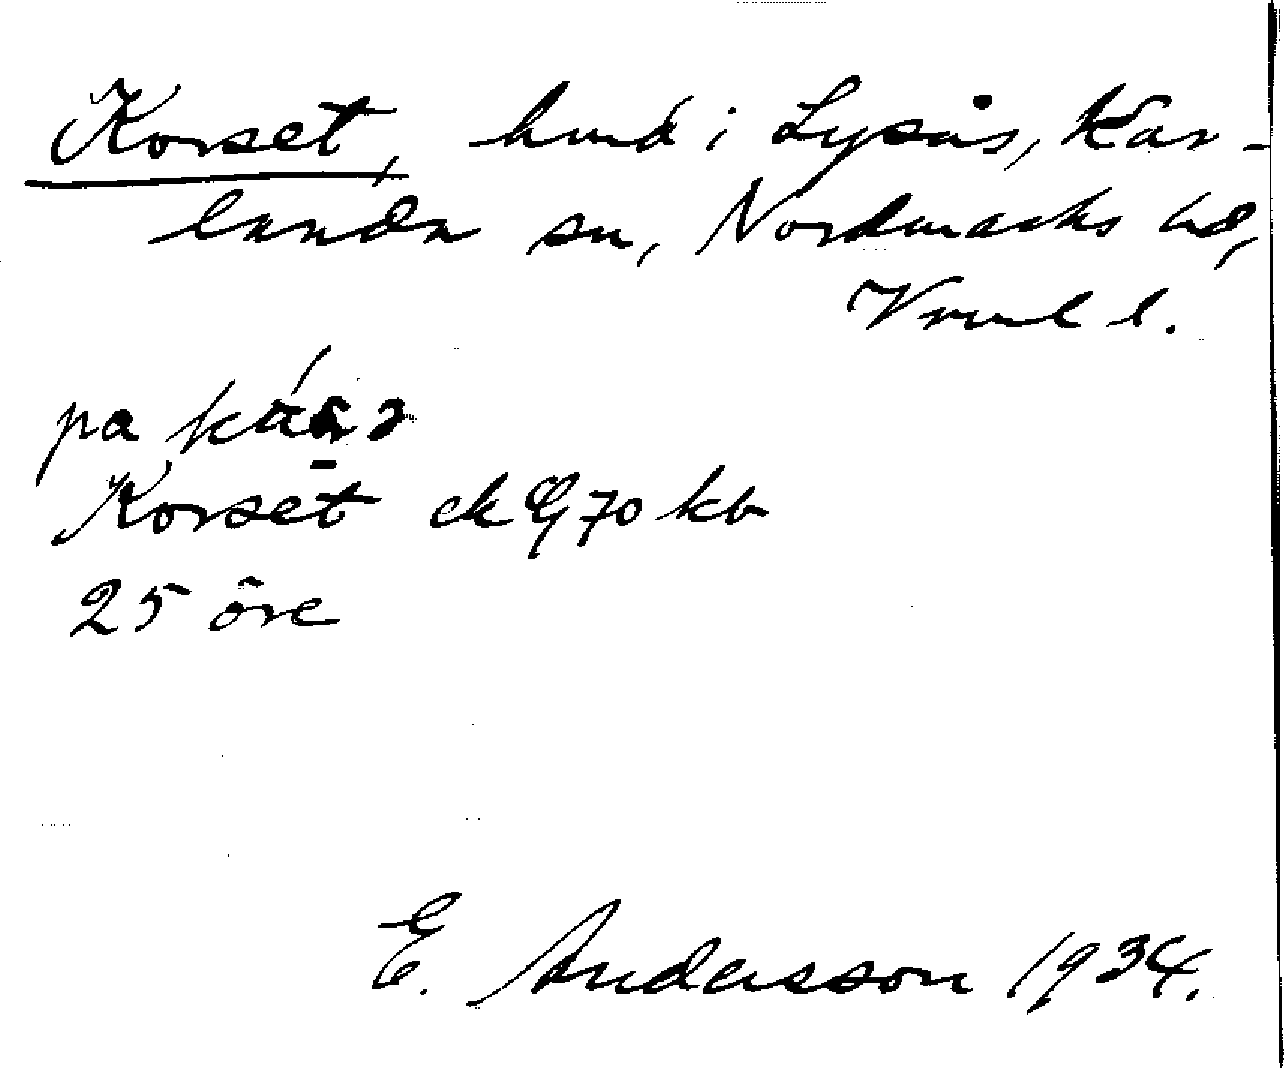 Korset, hmd i Lysås, Kar-
landa sn, Nordmarks hd,
Vrml l.
pa
Korset ek 70 kb
25 öre
E. Andersson 1934.